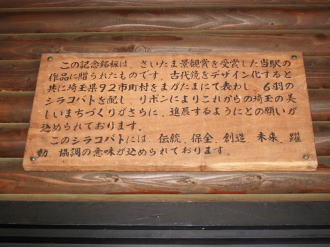 この記念銘板は、さいたま景観賞を受賞した当駅の
作品に贈られたものです。古代鏡をデザイン化すると
共に埼玉県92市町村をまがたまにて表わし、6羽の
シラコバトを配し、リボンによりこれからの埼玉の美
しいまちづくりがさらに、進展するようにとの願いが
込められております。
このシラコバトには、伝統、保全、創造、未来、躍
動、協調の意味が込められております。